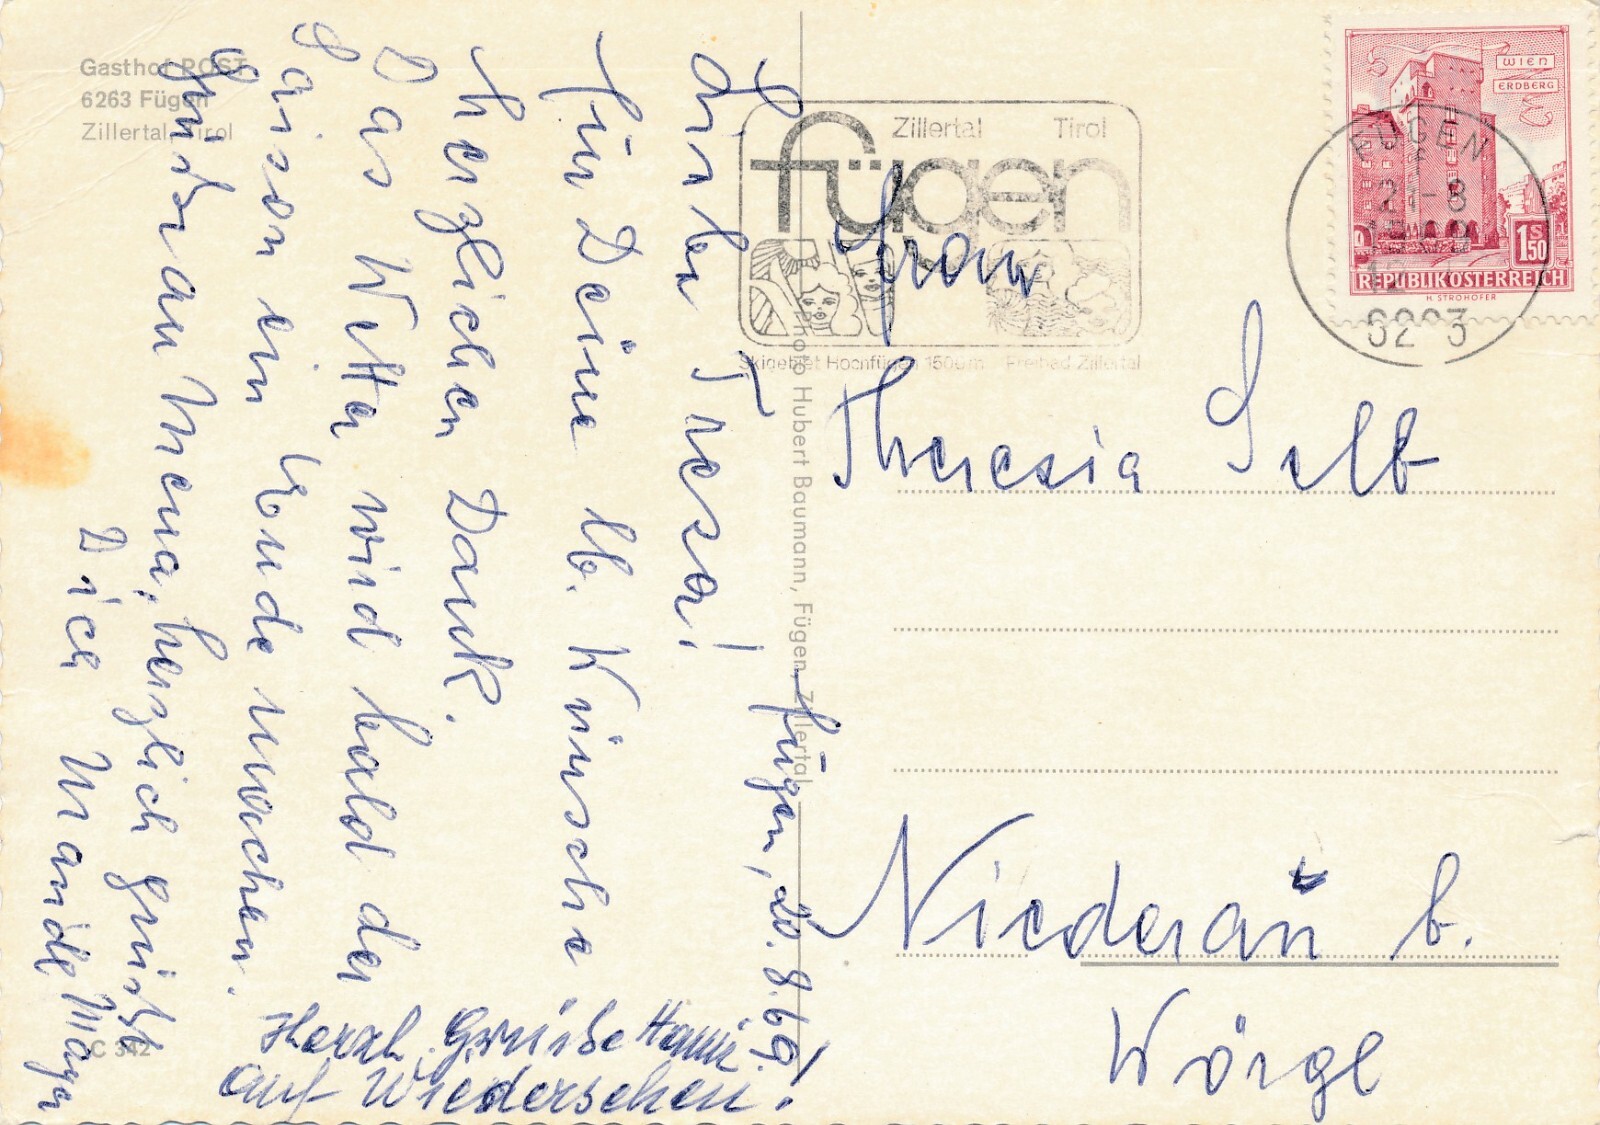 Gasthof POST
6263 Fügen
Zillertal, Tirol
Fügen, 20.8.69!
Liebe Tresa!
Für Deine lb. Wünsche
herzlichen Dank.
Das Wetter wird bald der
Saison ein Ende machen.
Grüße an Mena, herzlich grüßt
Dich
Herzl. Grüße Hanni
auf Wiedersehen!
C 342
Photo Hubert Baumann, Fügen, Zillertal
Zillertal Tirol
fügen
Skigebiet Hochfügen 1500m Freibad Zillertal
WIEN
ERDBERG
1 S 50
REPUBLIK ÖSTERREICH
H. STROHOFER
FÜGEN
21-8
6263
Frau
Theresia Selb
Niederau b.
Wörgl